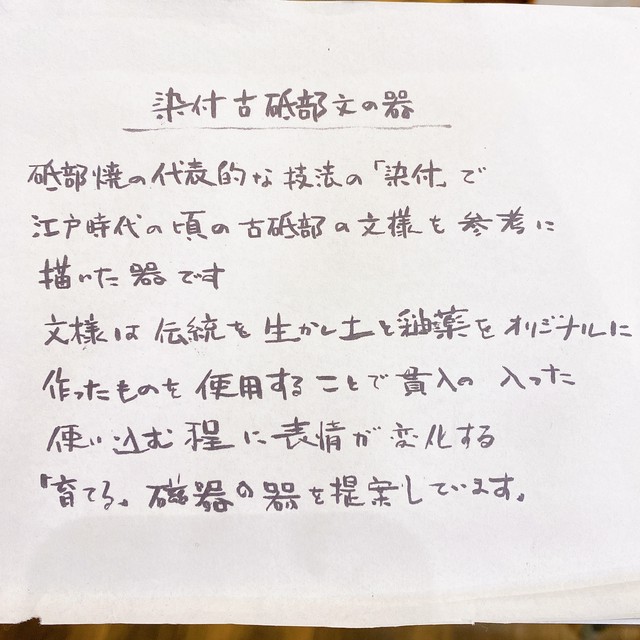 染付古砥部文の器
砥部焼の代表的な技法の「染付」で
江戸時代の頃の古砥部の文様を参考に
描いた器です
文様は伝統を生かし土と釉薬をオリジナルに
作ったものを使用することで貫入の入った
使い込む程に表情が変化する
「育てる」磁器の器を提案しています。